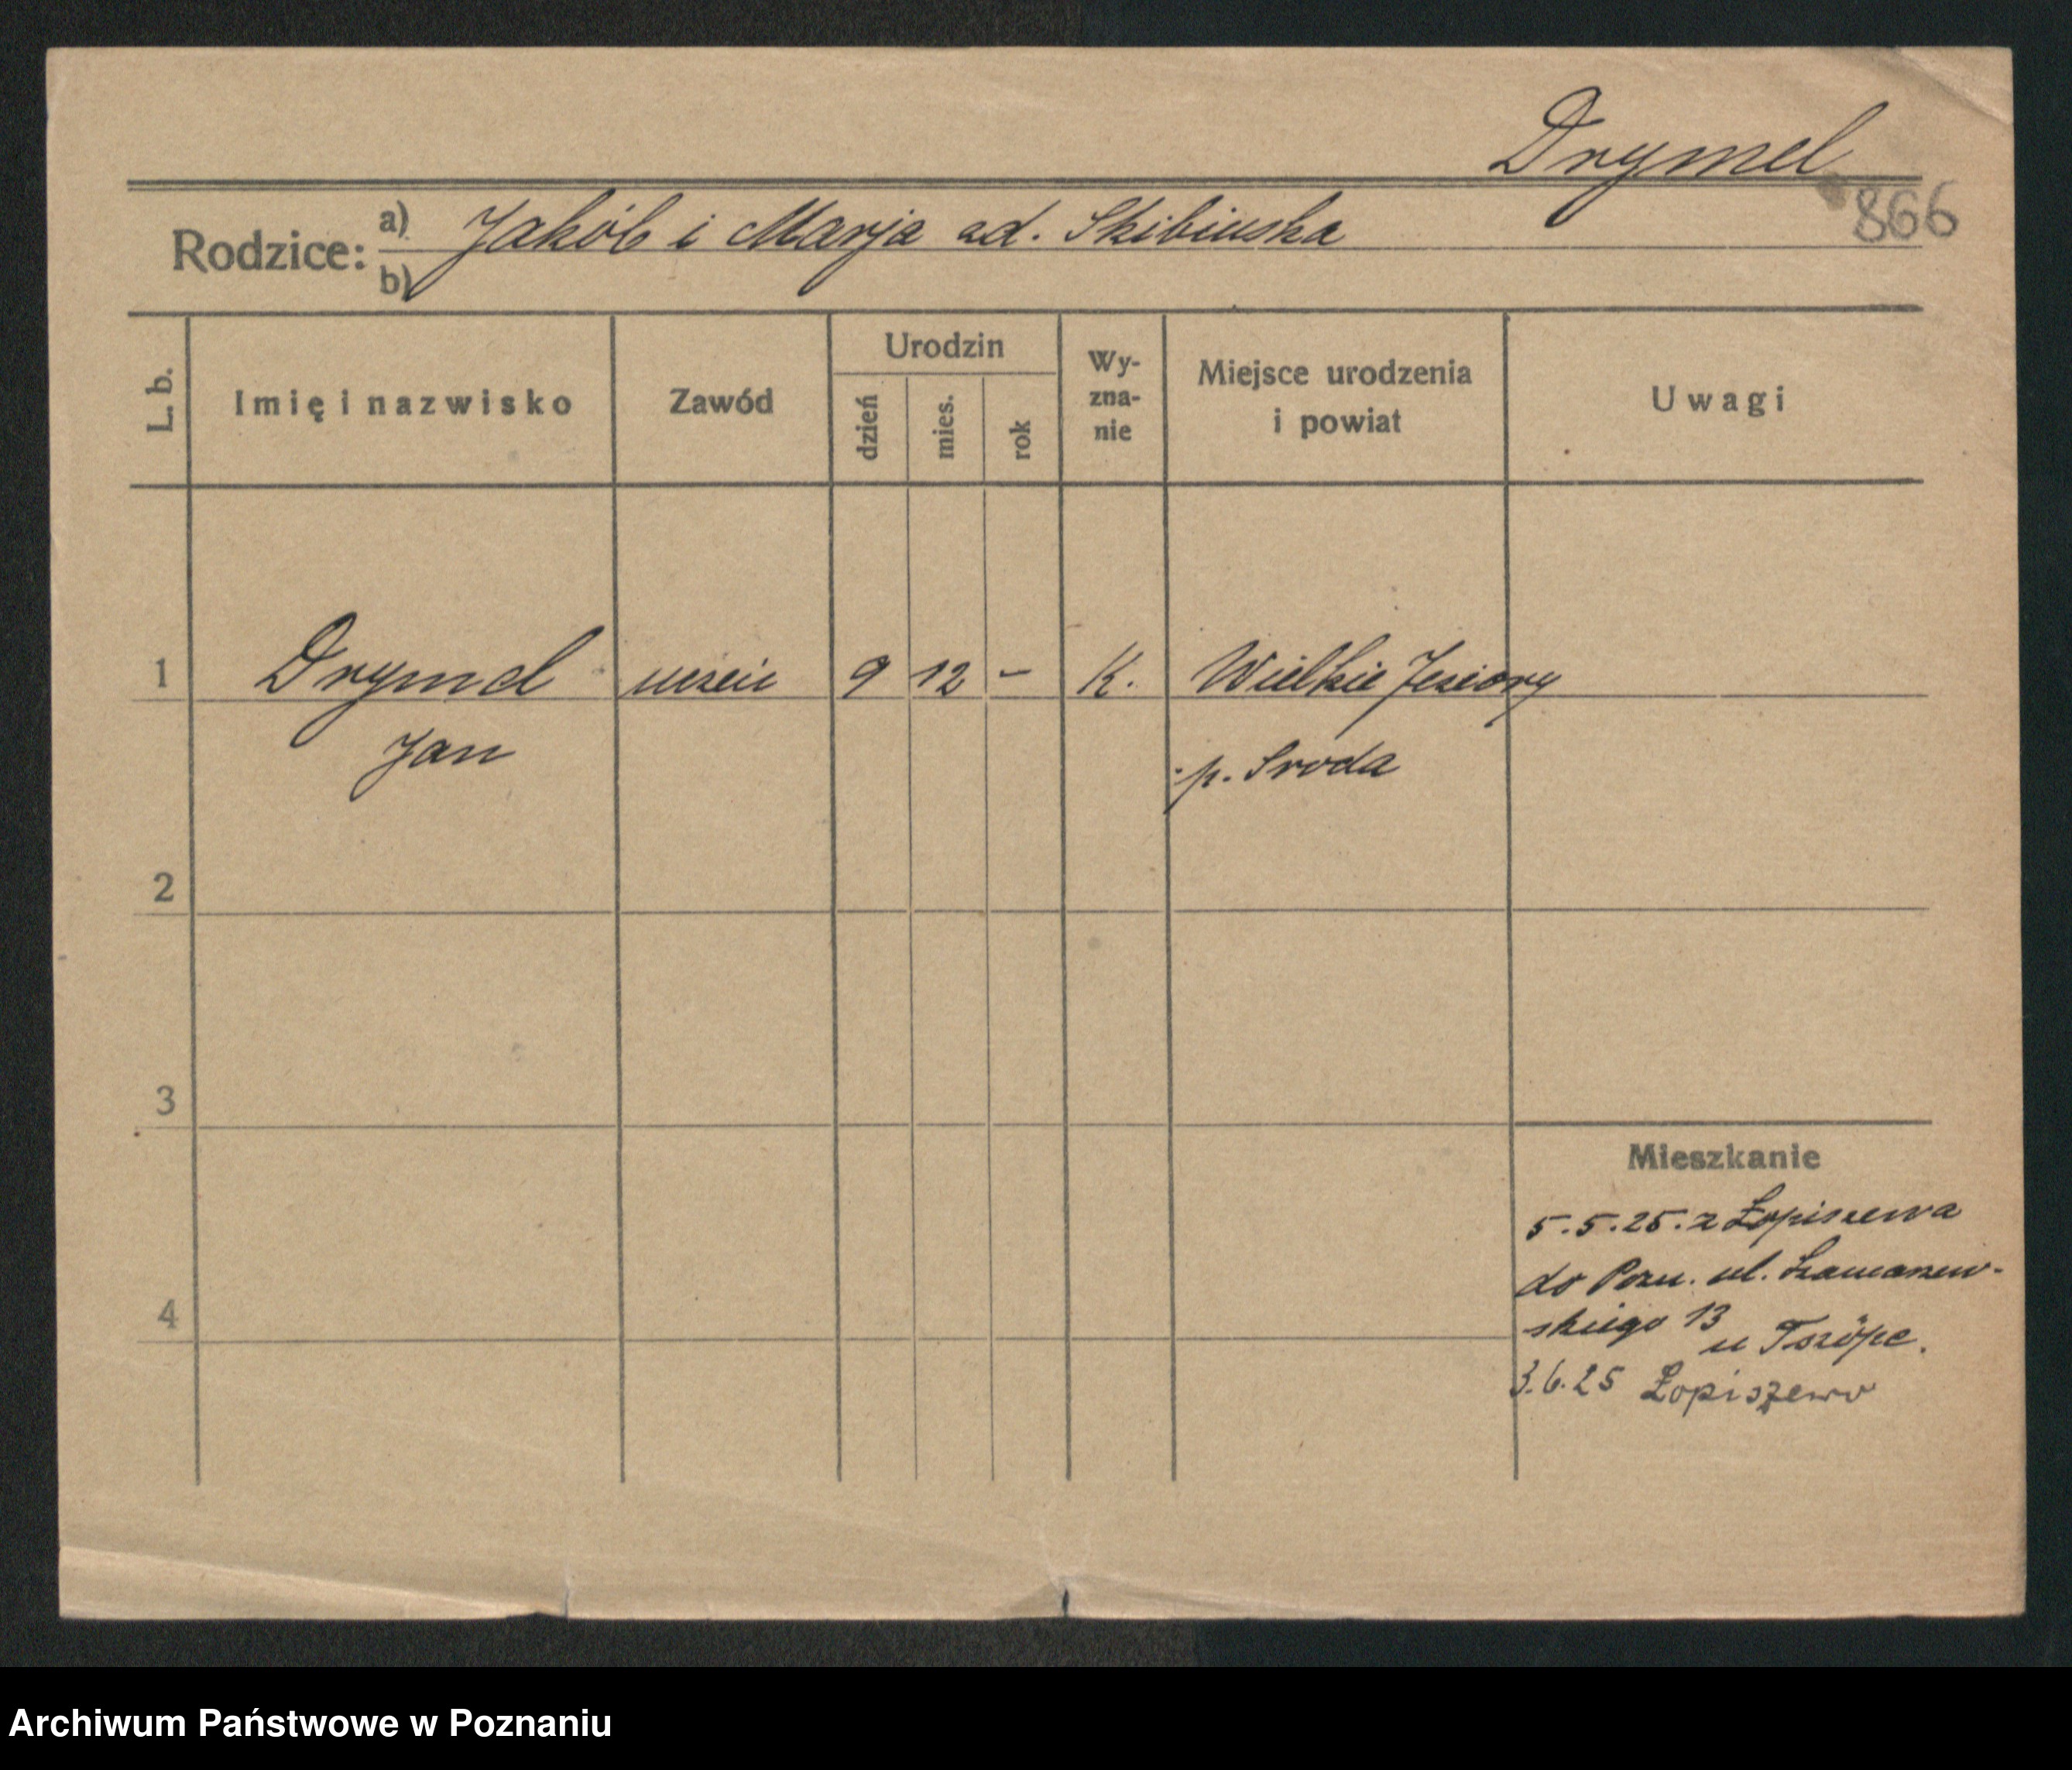 Drymel
866
Rodzice: a) Jakób i Marja ad. Skibinska
b)
L. b. Imię i nazwisko Zawód Urodzin dzień mies. rok Wy-zna-nie Miejsce urodzenia i powiat Uwagi
1 Drymel uczeń 9 12 – K. Wielkie Jeziory
Jan p. Sroda
2
3
Mieszkanie
5.5.25. z Łopiszewa
do Pozn. ul.
4
skiego 13
u
3.6.25 Łopiszewo
Archiwum Państwowe w Poznaniu